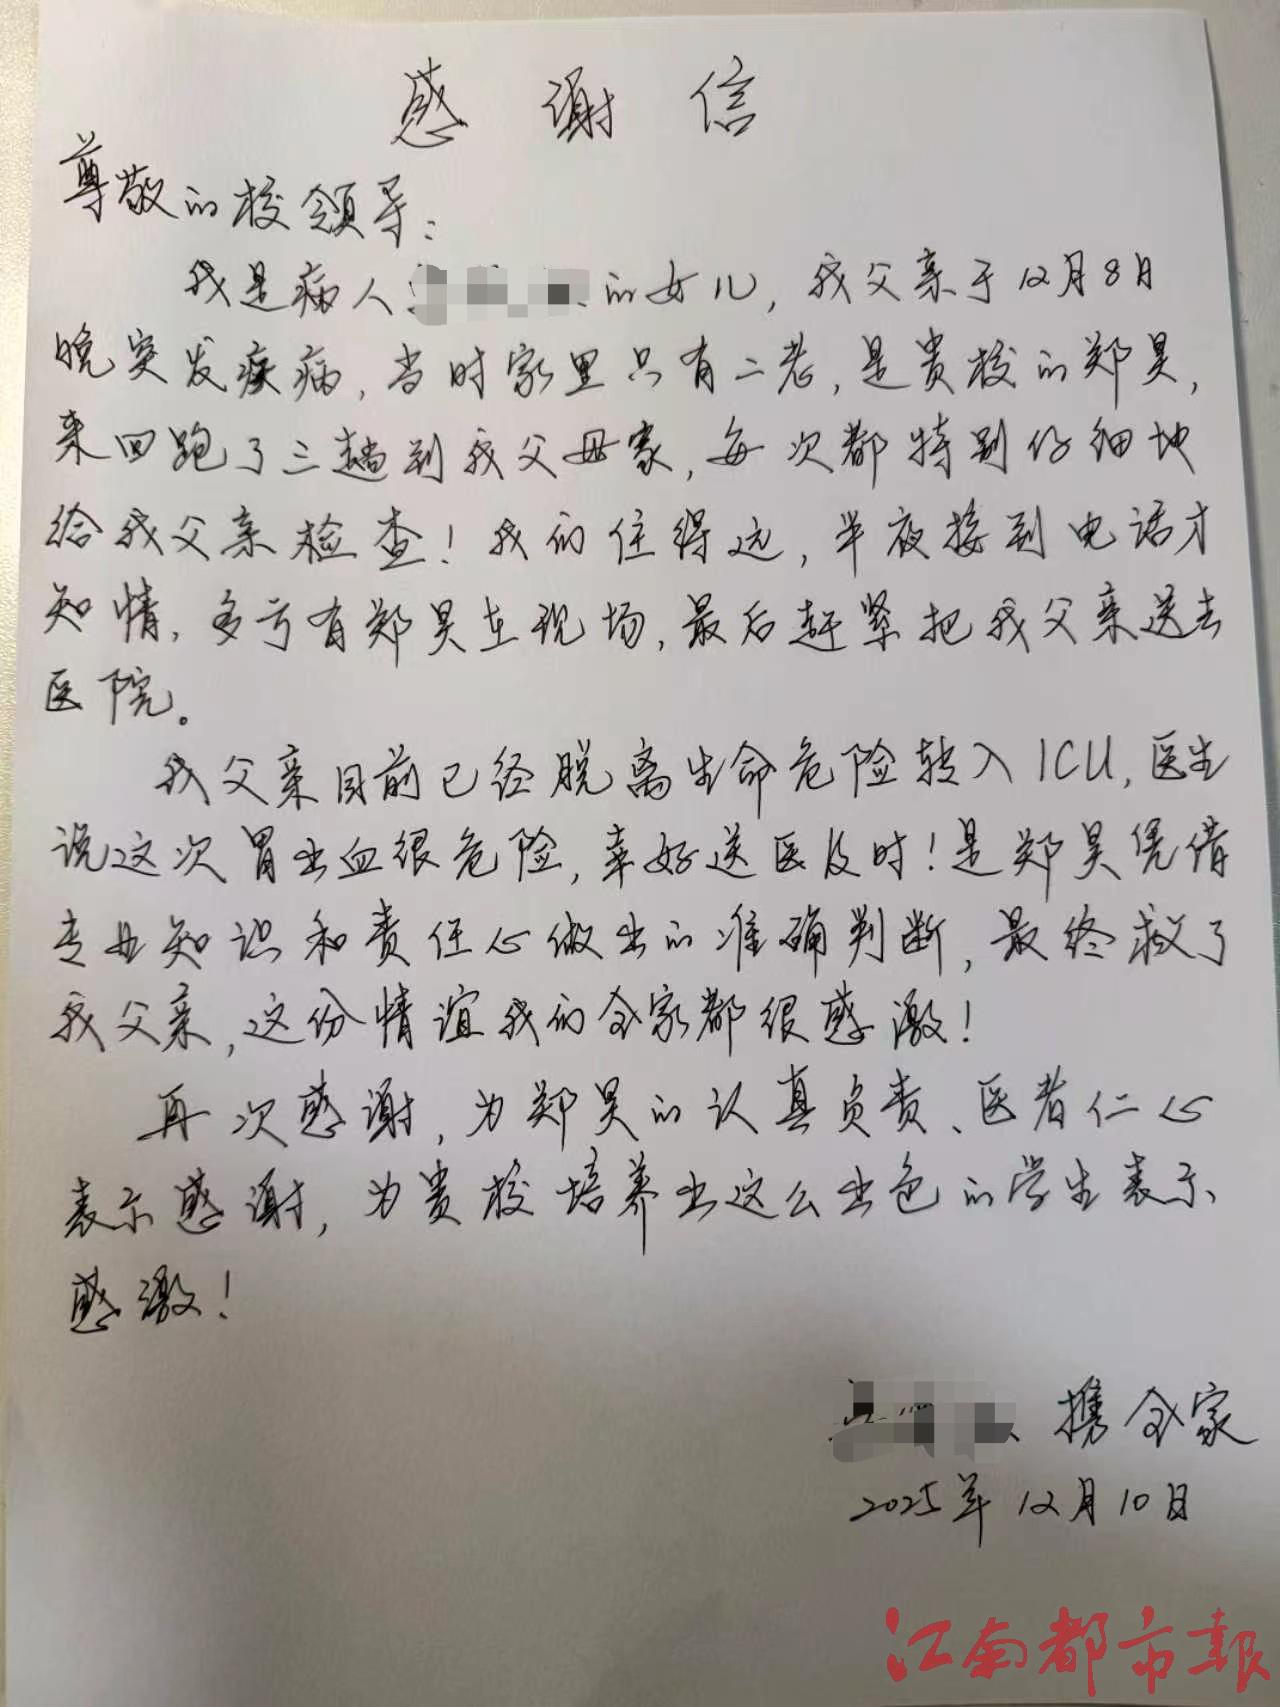 感谢信
尊敬的校领导：
我是病人的女儿，我父亲于12月8日
晚突发疾病，当时家里只有二老，是贵校的郑昊，
来回跑了三趟到我父母家，每次都特别仔细地
给我父亲检查！我们住得远，半夜接到电话才
知情，多亏有郑昊在现场，最后赶紧把我父亲送去
医院。
我父亲目前已经脱离生命危险转入ICU，医生
说这次胃出血很危险，幸好送医及时！是郑昊凭借
专业知识和责任心做出的准确判断，最终救了
我父亲，这份情谊我们全家都很感激！
再次感谢，为郑昊的认真负责、医者仁心
表示感谢，为贵校培养出这么出色的学生表示
感激！
携全家
2025年12月10日
江南都市报